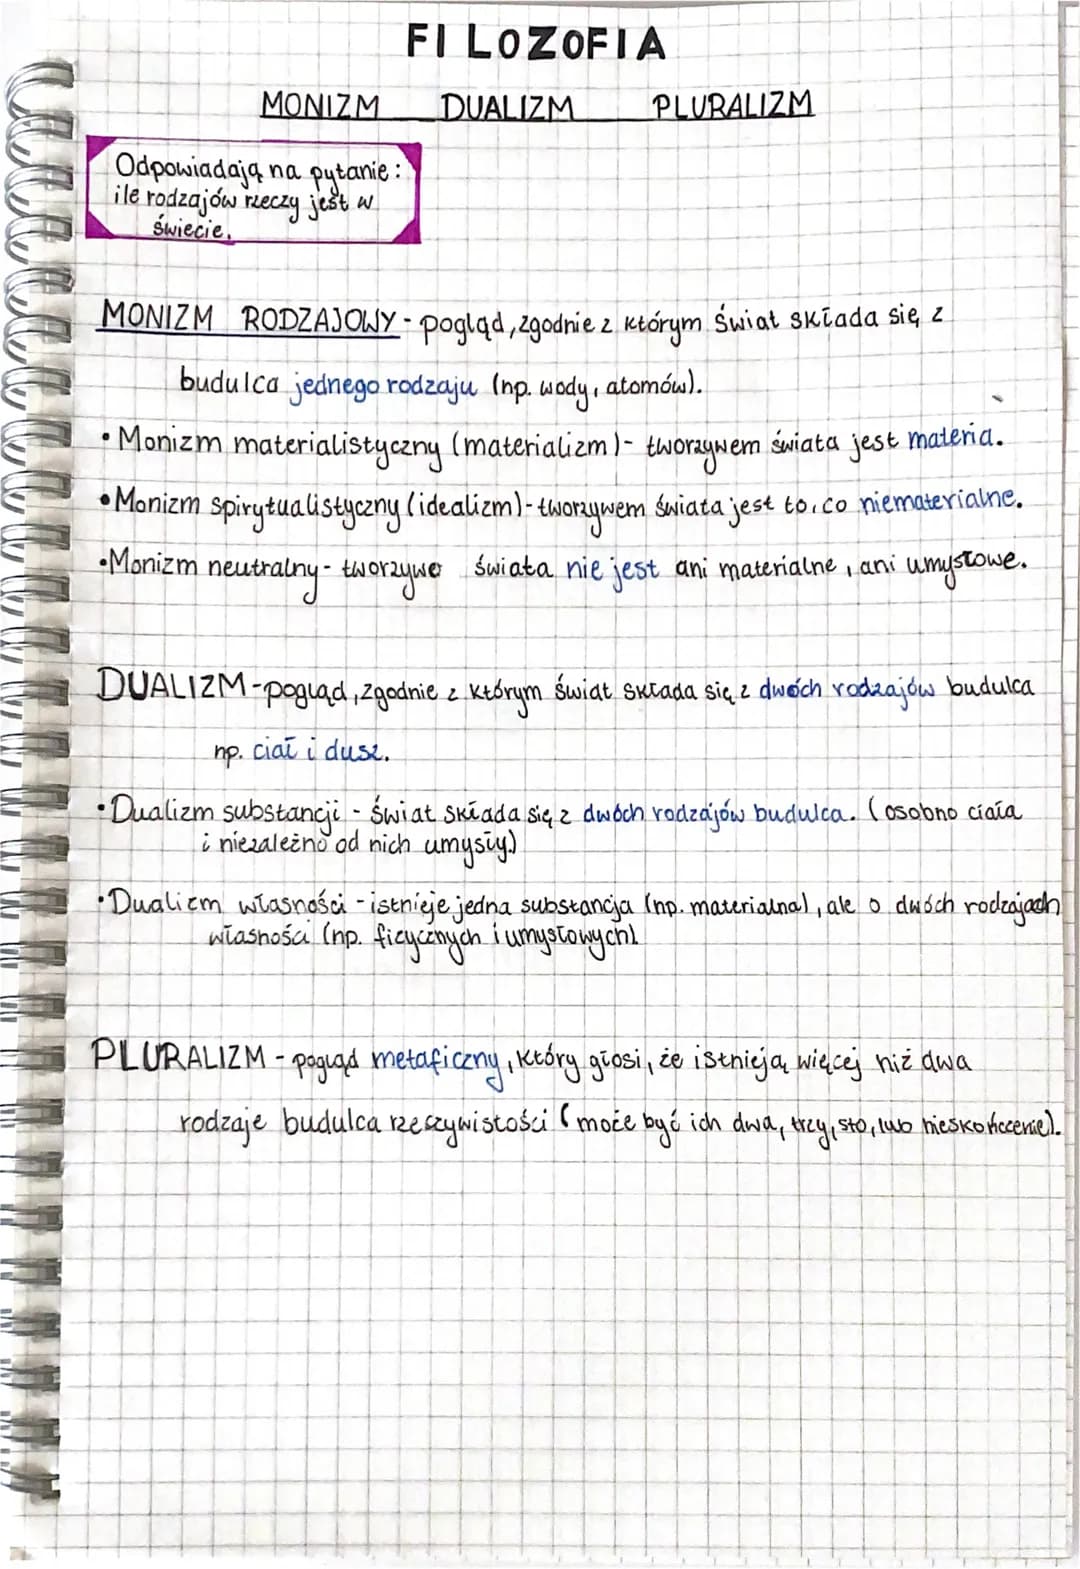 FILOZOFIA
MONIZM DUALIZM PLURALIZM
Odpowiadają na pytanie:
ile rodzajów rzeczy jest w
świecie.
MONIZM RODZAJOWY - pogląd, zgodnie z którym świat składa się z
budulca jednego rodzaju (np. wody, atomów).
• Monizm materialistyczny (materializm) - tworzywem świata jest materia.
• Monizm spirytualistyczny (idealizm) - tworzywem świata jest to, co niematerialne.
• Monizm neutralny - tworzywo świata nie jest ani materialne, ani umysłowe.
DUALIZM - pogląd, zgodnie z którym świat składa się z dwóch rodzajów budulca
np. ciał i dusz.
• Dualizm substancji - świat składa się z dwóch rodzajów budulca. (osobno ciała
i niezależno od nich umysły)
• Dualizm własności - istnieje jedna substancja (np. materialna), ale o dwóch rodzajach
własności (np. fizycznych i umysłowych)
PLURALIZM - pogląd metaficzny, który głosi, że istnieją więcej niż dwa
rodzaje budulca rzeczywistości (może być ich dwa, trzy, sto, lub nieskończenie).